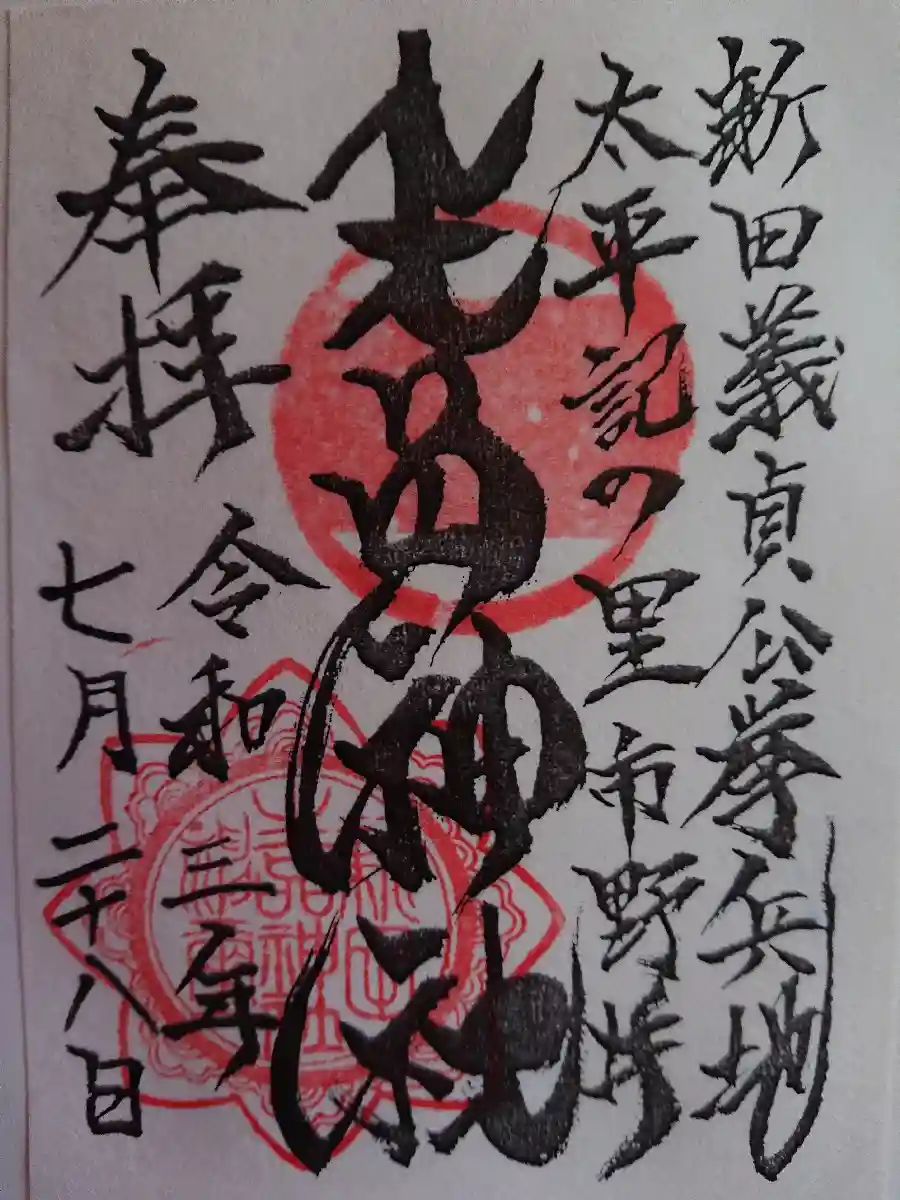 新田義貞公挙兵地
太平記の里 市野井
生品神社
奉拝
令和三年
七月二十八日